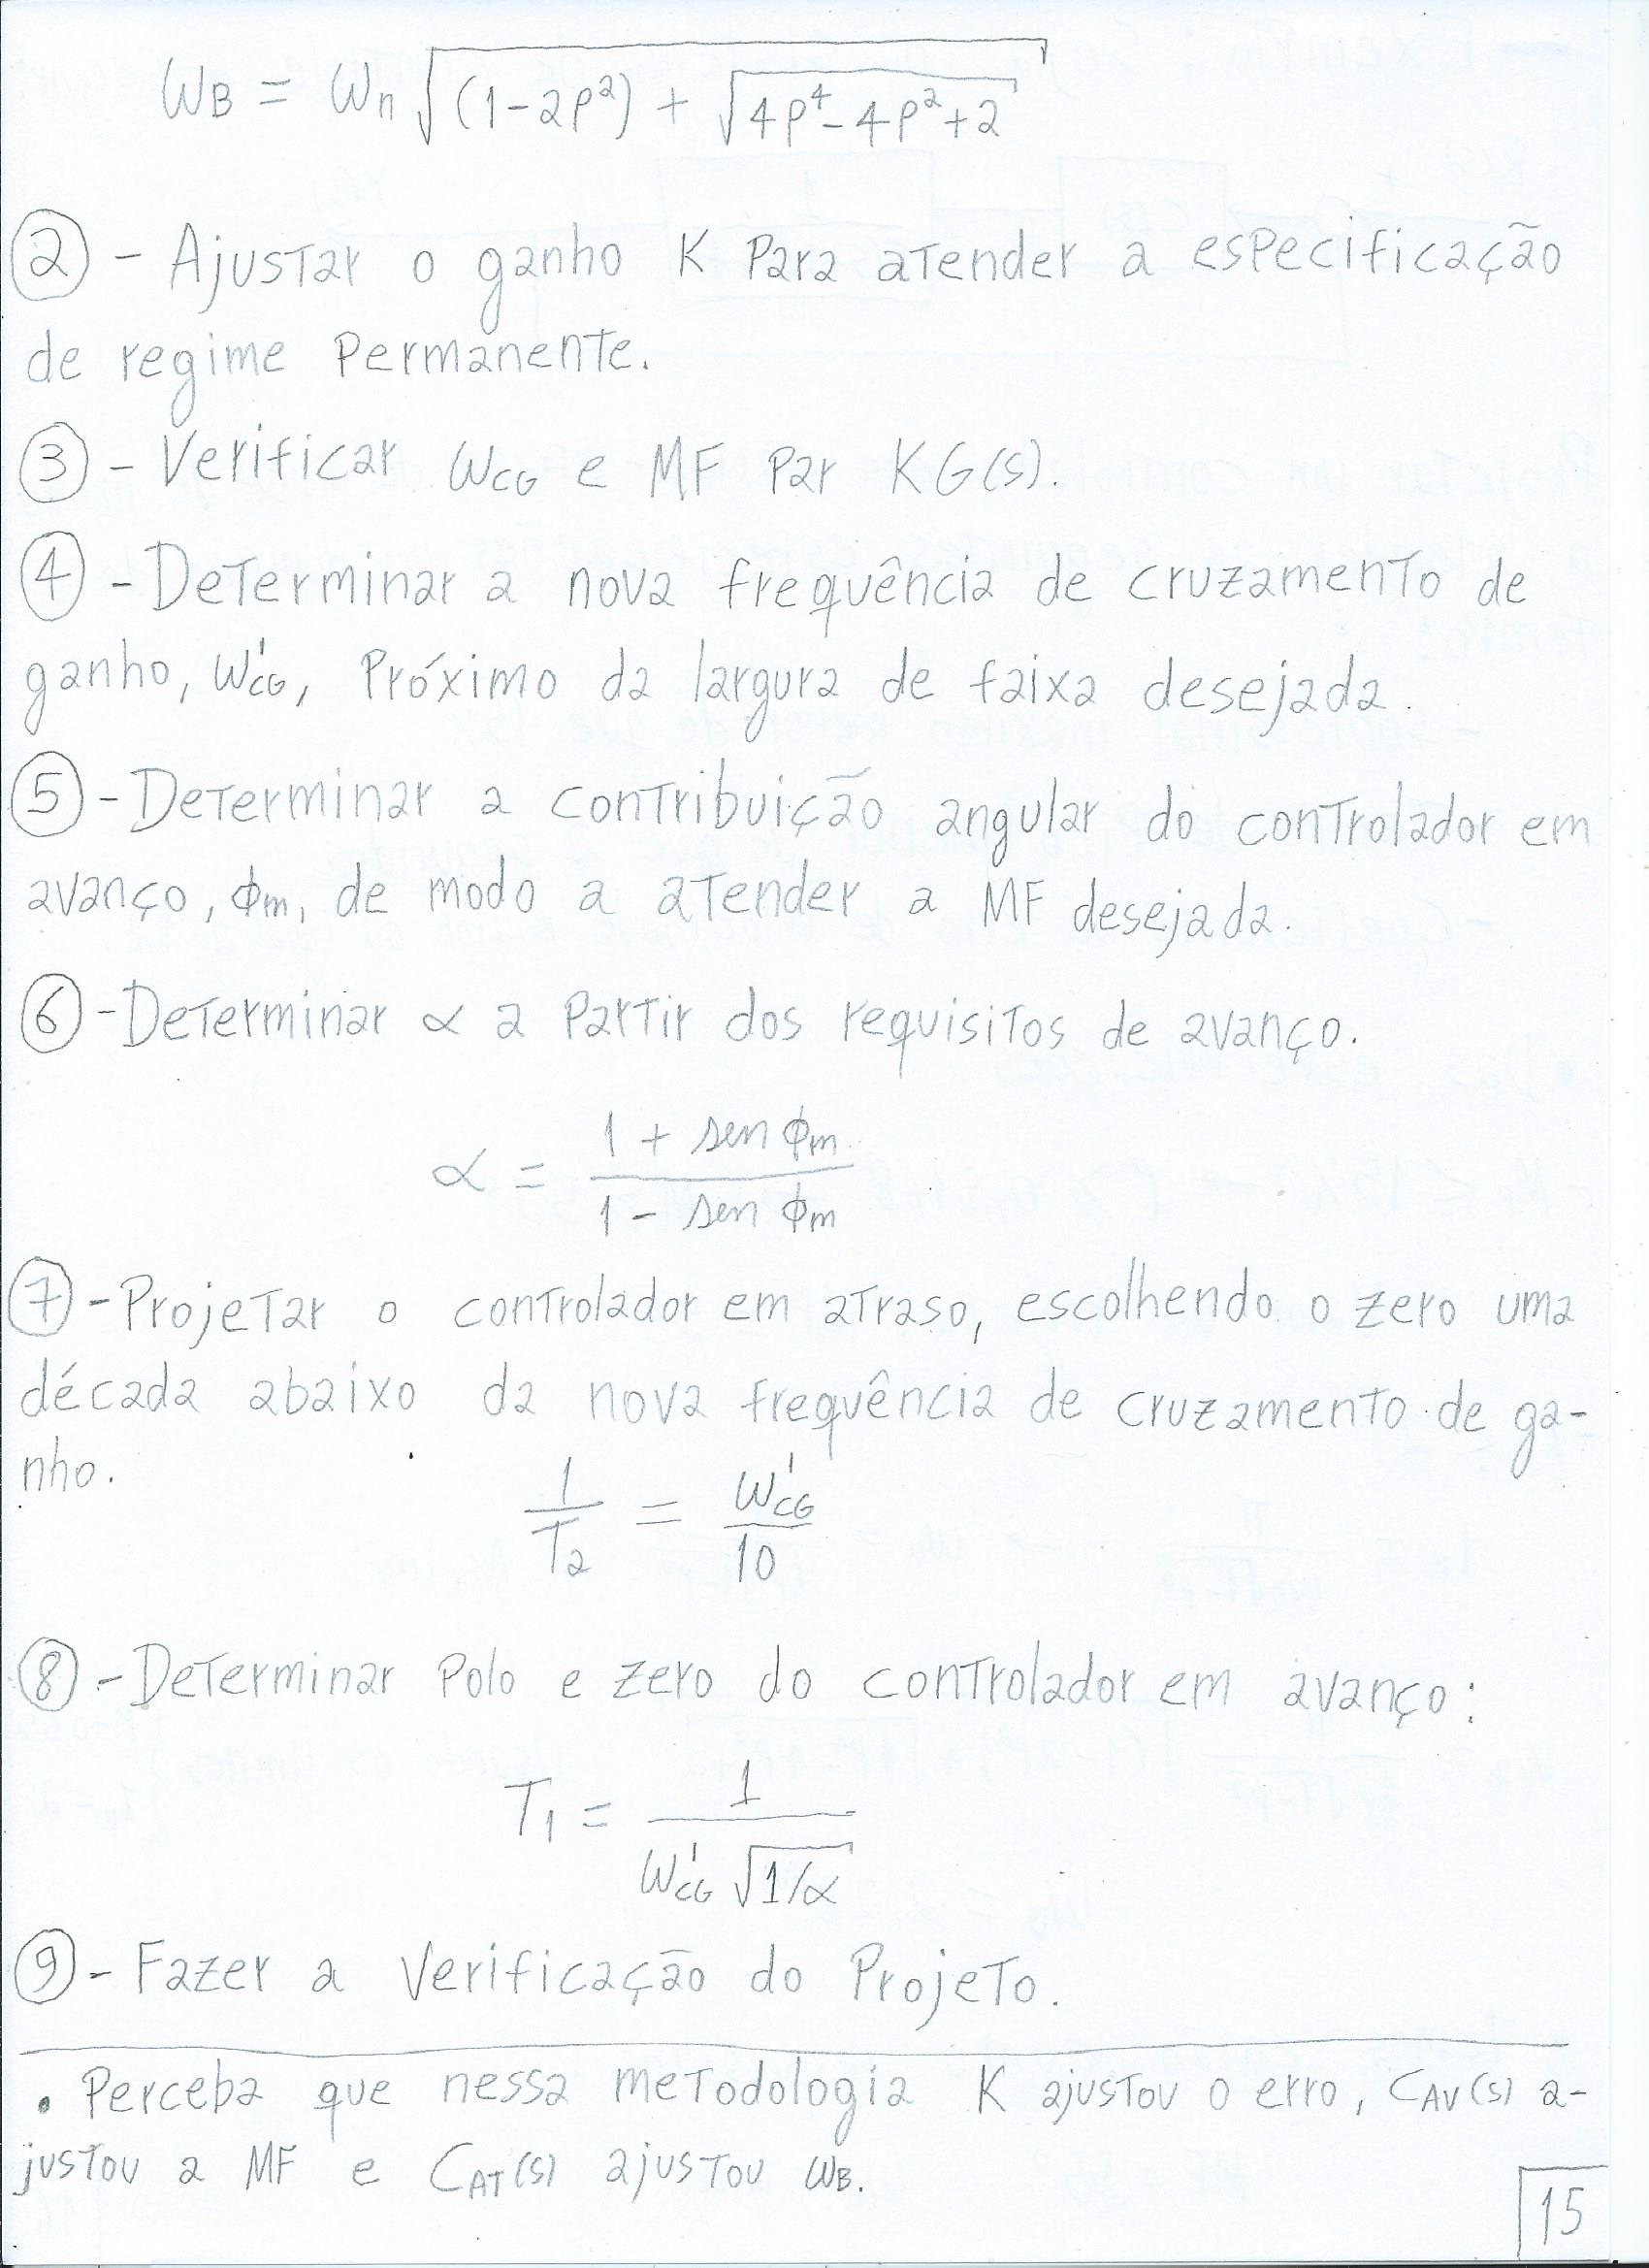 ωB = ωn √((1-2ρ²) + √(4ρ⁴-4ρ²+2))
② - Ajustar o ganho K para atender a especificação
de regime permanente.
③ - Verificar ωCG e MF par KG(s).
④ - Determinar a nova frequência de cruzamento de
ganho, ω'CG, próximo da largura de faixa desejada.
⑤ - Determinar a contribuição angular do controlador em
avanço, ϕm, de modo a atender a MF desejada.
⑥ - Determinar α a partir dos requisitos de avanço.
α = (1 + sen ϕm) / (1 - sen ϕm)
⑦ - Projetar o controlador em atraso, escolhendo o zero uma
década abaixo da nova frequência de cruzamento de ga-
nho.
1/T2 = ω'CG/10
⑧ - Determinar polo e zero do controlador em avanço:
T1 = 1 / (ω'CG √(1/α))
⑨ - Fazer a verificação do projeto.
• Perceba que nessa metodologia K ajustou o erro, CAV(s) a-
justou a MF e CAT(s) ajustou ωB.
15